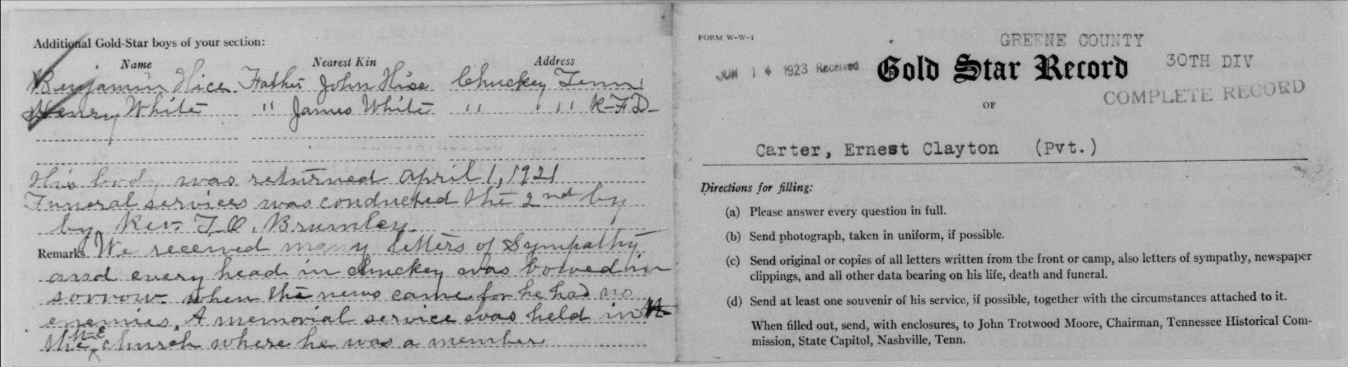 Additional Gold-Star boys of your section:
Name Nearest Kin Address
Benjamin Hice Father John Hise Chuckey Tenn
Henry White " James White " " " R-F-D-
His body was returned April 1, 1921
Funeral services was conducted the 2nd by
by Rev. T.O. Brumley.
Remarks We received many letters of Sympathy
and every head in chuckey was bowed in
sorrow when the news came for he had no
enemies. A memorial service was held in
the M-E church where he was a member
FORM W-W-1
GREENE COUNTY
JUN 14 1923 Received
Gold Star Record
30TH DIV
COMPLETE RECORD
OF
Carter, Ernest Clayton (Pvt.)
Directions for filling:
(a) Please answer every question in full.
(b) Send photograph, taken in uniform, if possible.
(c) Send original or copies of all letters written from the front or camp, also letters of sympathy, newspaper
clippings, and all other data bearing on his life, death and funeral.
(d) Send at least one souvenir of his service, if possible, together with the circumstances attached to it.
When filled out, send, with enclosures, to John Trotwood Moore, Chairman, Tennessee Historical Com-
mission, State Capitol, Nashville, Tenn.